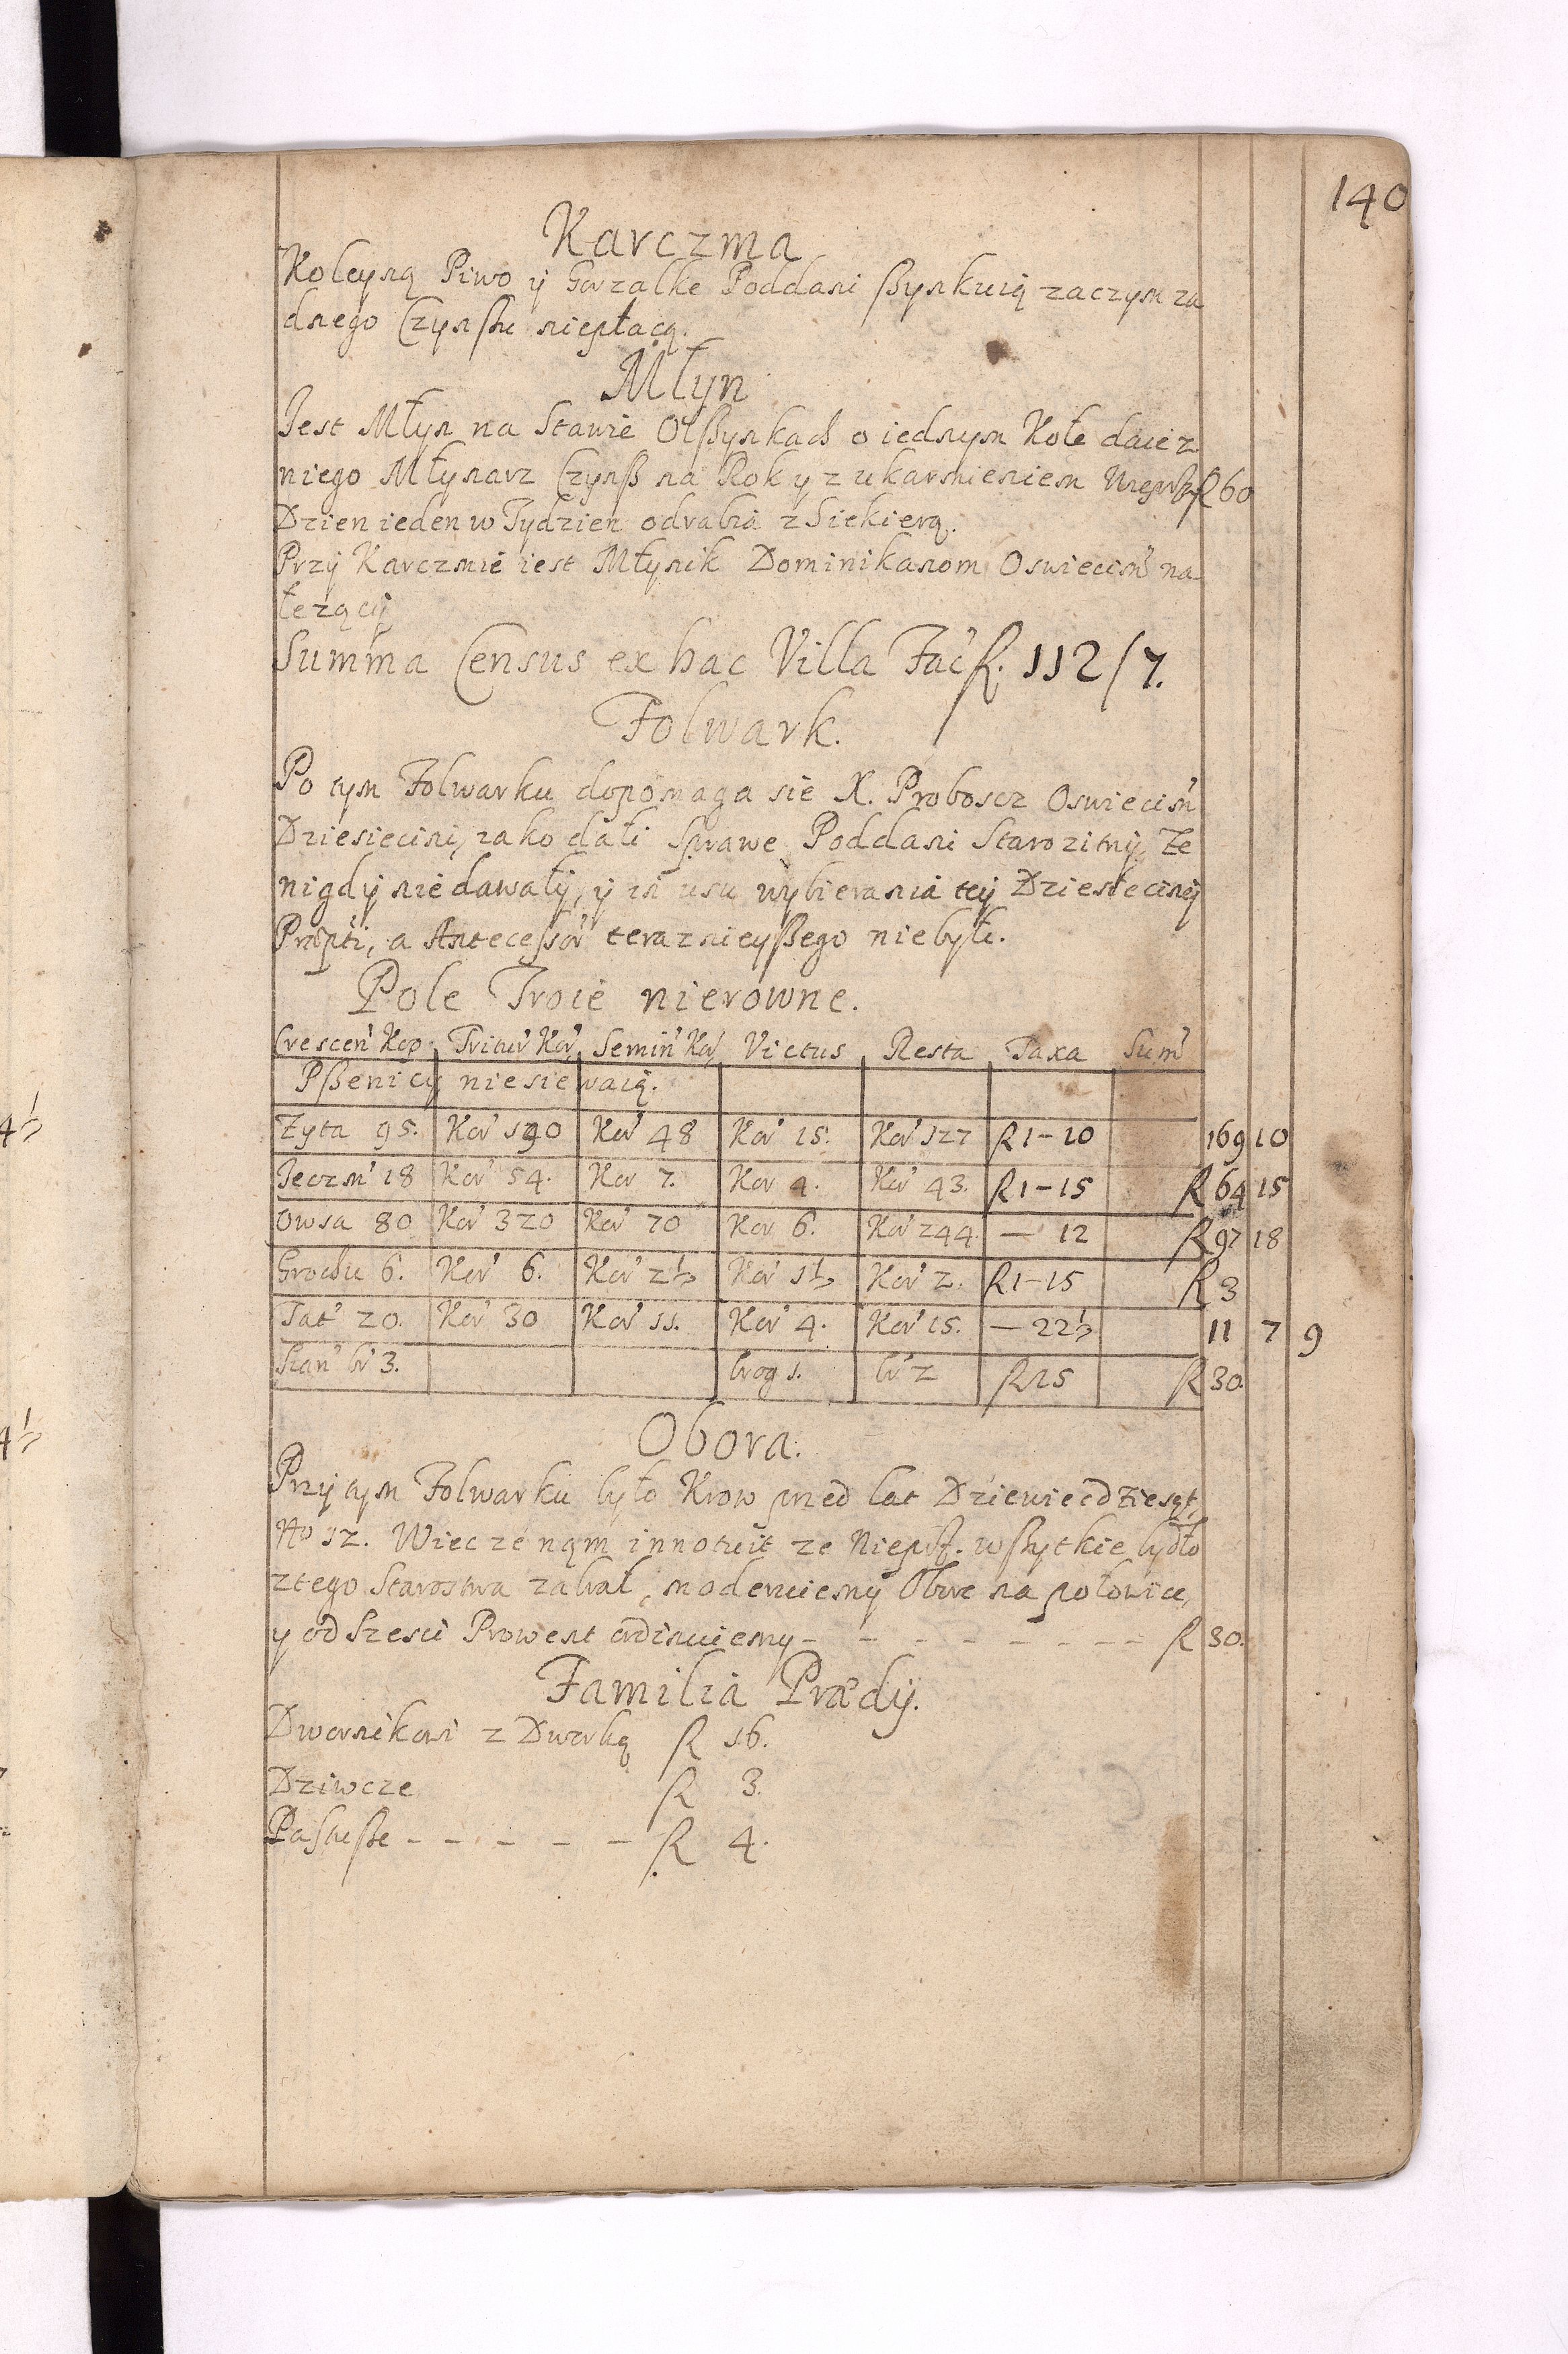 140
Karczma
Koleyną Piwo y Gorzalke Poddani ßynkuią zaczym za
dnego Czynßu niepłacą.
Młyn
Iest Młyn na Stawie Olßynkach o iednym Kole daie z
niego Młynarz Czynß na Rok y z ukarmieniem R 60
Dzien ieden w Tydzien odrabia z Siekierą.
Przy Karczmie iest Młynik Dominikanom Oswiecim̃ na
łezący
Summa Census ex hac Villa Fac̃ R. 112/7.
Folwark.
Po tym Folwarku dopomaga sie X. Proboscz Oswiecim̃
Dziesieciny, iako dali Sprawe Poddani Starozitny, Ze
nigdy niedawały, y in usu wybierania tey Dziesieciny
Præpti, a Antecessor teraznieyßego niebyłi.
Pole Troie nierowne.
Crescen̄ Kop Tritur̄ Kor̄ Semin̄ Kor̄ Victus Resta Taxa Sum̄
Pßenicy niesiewaią.
Zyta 95. Kor 190 Kor 48 Kor 15. Kor 127 R 1-10 169 10
Jeczm̄ 18 Kor 54. Kor 7. Kor 4. Kor 43. R 1-15 R 64 15
Owsa 80 Kor 320 Kor 70 Kor 6. Kor 244. — 12 R 97 18
Grochu 6. Kor 6. Kor 2½ Kor 1½ Kor 2. R 1-15 R 3
Tat̄ 20. Kor 30 Kor 11. Kor 4. Kor 15. — 22½ 11 7 9
Sian̄ br̄ 3. brog 1. br̄ 2 R 15 R 30.
Obora.
Przy tym Folwarku było Krow przed lat Dziewiecdziesąt,
No 12. Wiec ze nąm innotuit ze Niepr̄. wßytkie bydło
ztego Starostwa zabrał, moderuiemy Obore na połowice,
y od Szesci Prowent ordinuiemy - - - - - - - - R 30.
Familia Prædÿ.
Dwornikowi z Dworką R 16.
Dziwcze R 3.
Pastußce - - - - - R 4.